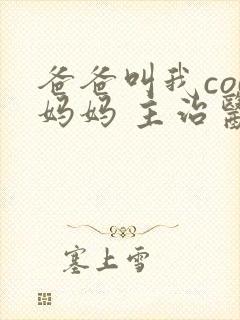 爸爸叫我co
妈妈 主治
塞上雪